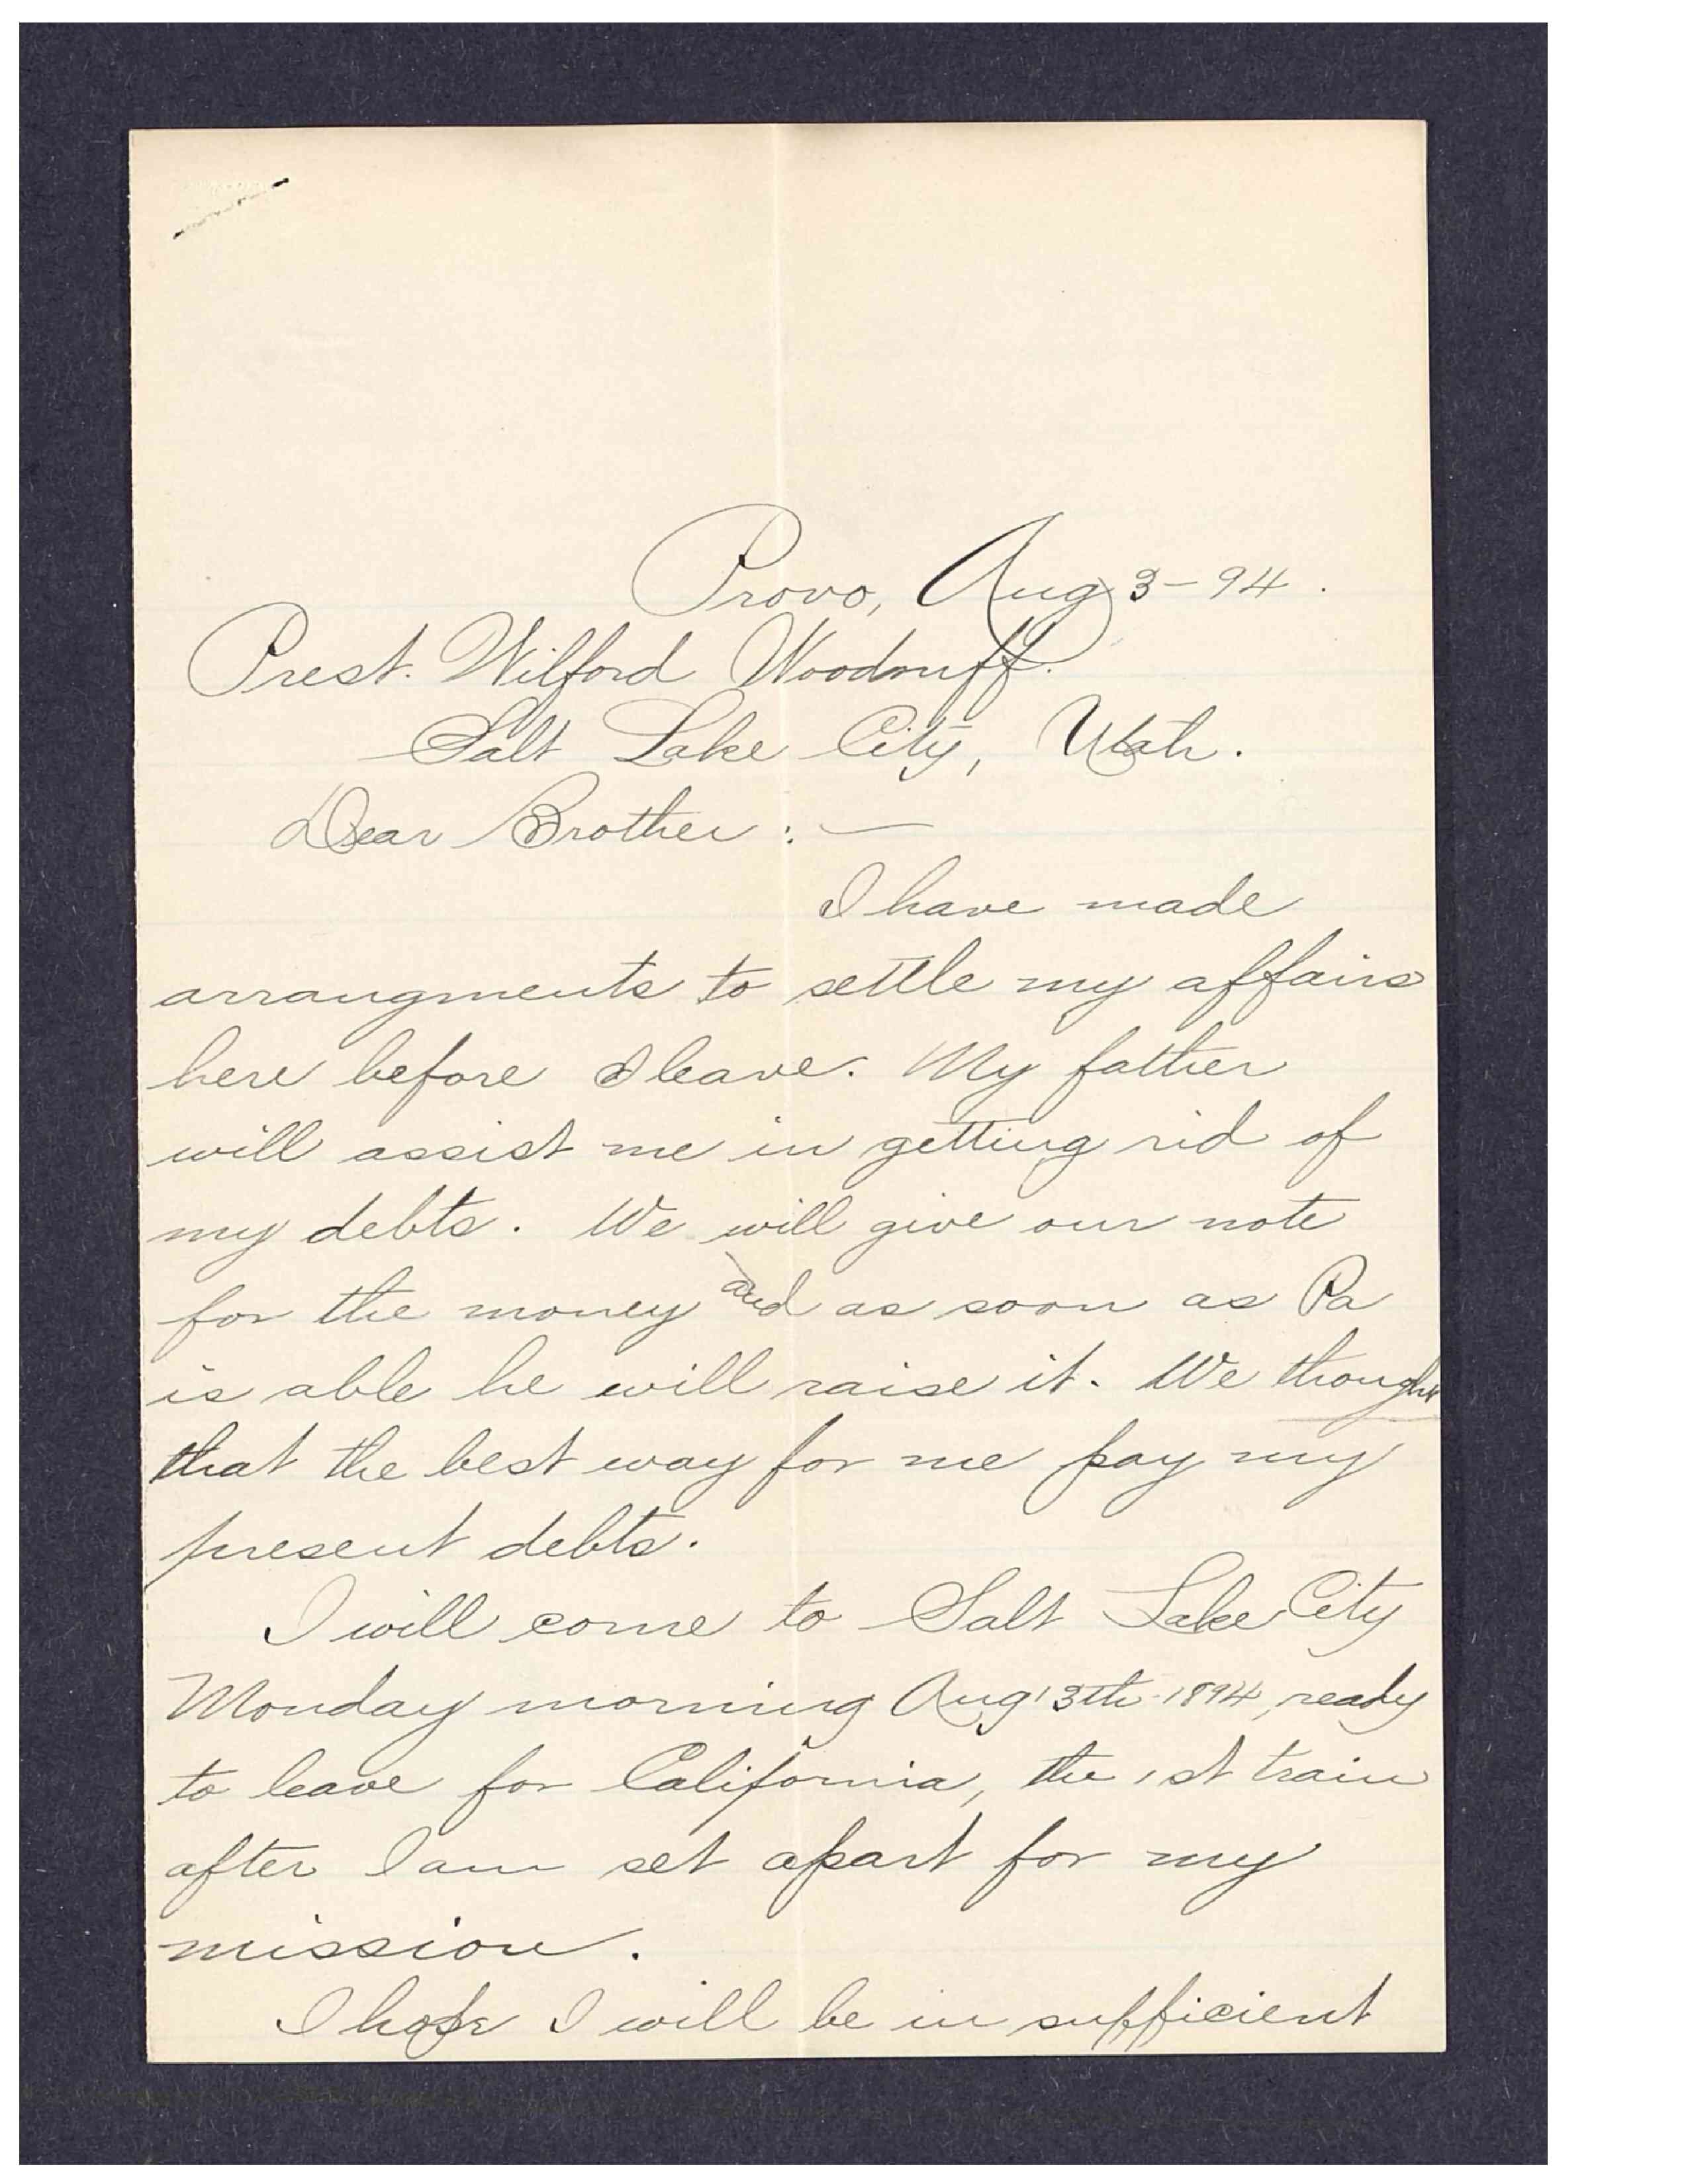 Provo, Aug 3-94.
Prest. Wilford Woodruff.
Salt Lake City, Utah.
Dear Brother:—
I have made
arrangments to settle my affairs
here before I leave. My father
will assist me in getting rid of
my debts. We will give our note
for the money and as soon as Pa
is able he will raise it. We thought
that the best way for me pay my
present debts.
I will come to Salt Lake City
Monday morning Aug 13th 1894, ready
to leave for California, the 1st train
after I am set apart for my
mission.
I hope I will be in sufficient